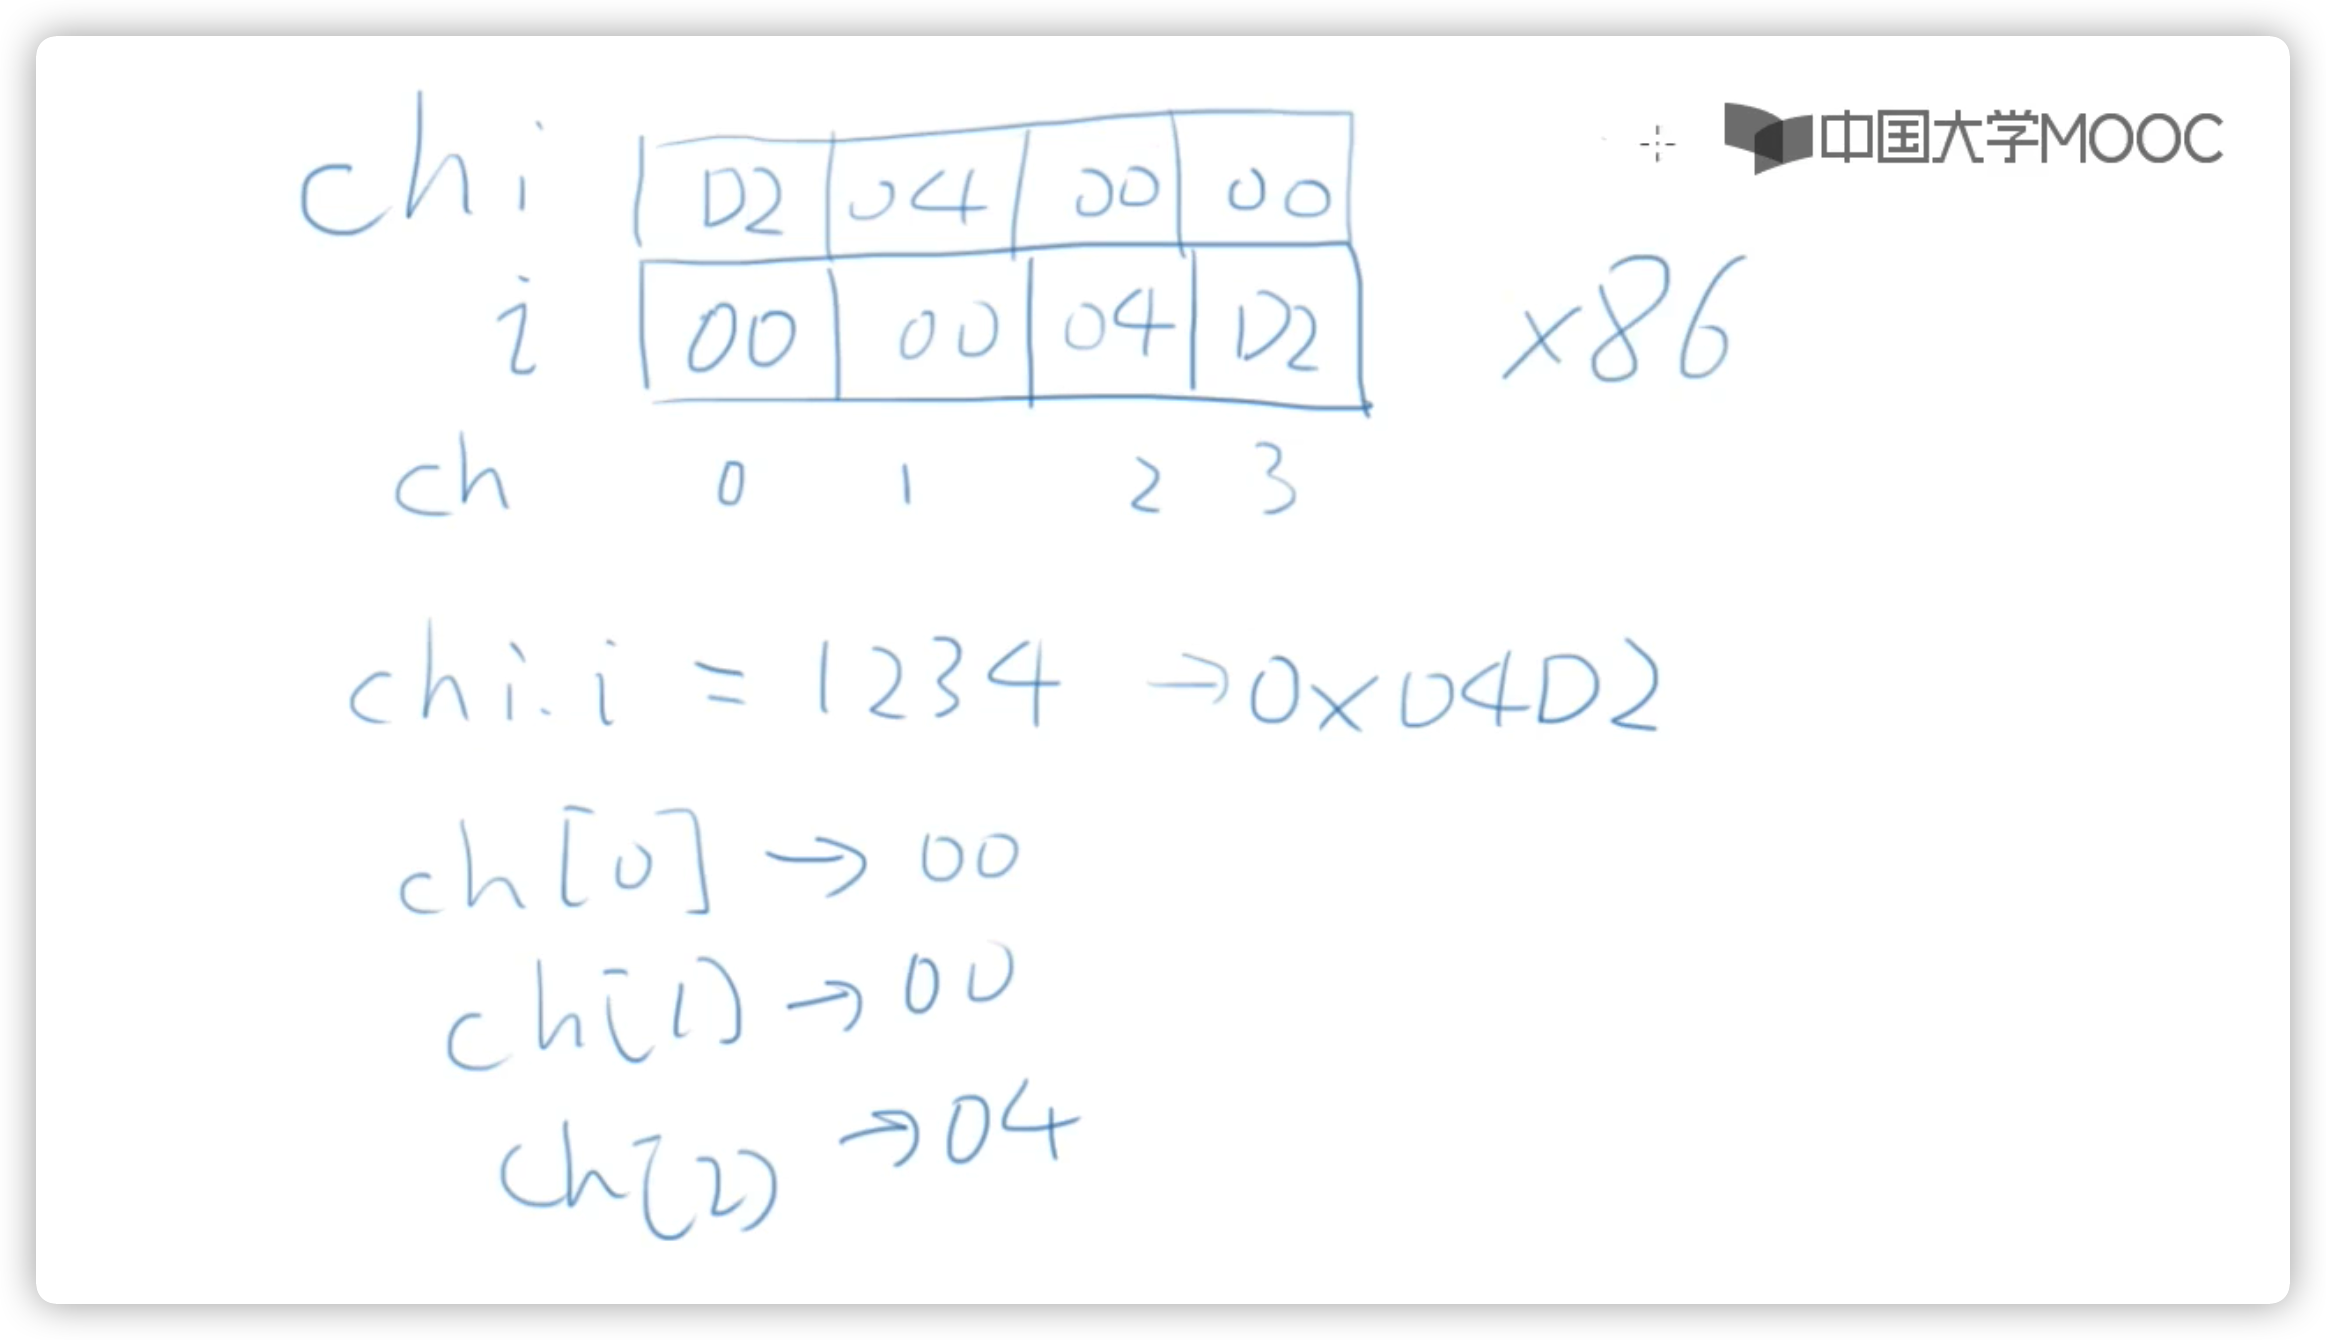 中国大学MOOC
chi D2 04 00 00
i 00 00 04 D2 x86
ch 0 1 2 3
chi.i = 1234 → 0x04D2
ch[0] → 00
ch[1] → 00
ch[2] → 04